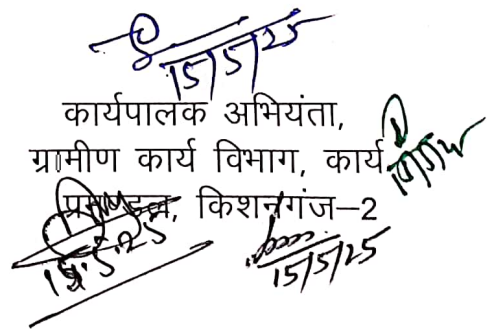 15/5/25
कार्यपालक अभियंता,
ग्रामीण कार्य विभाग, कार्य
प्रमण्डल, किशनगंज–2
15.5.25
15/5/25